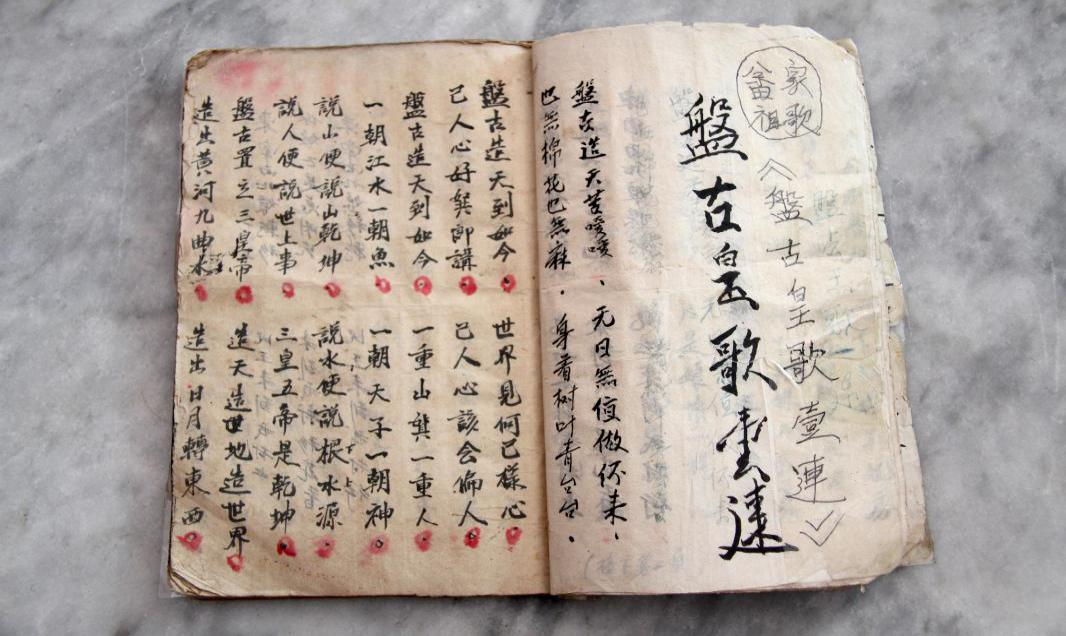 畲家
祖歌
《盤古皇歌壹連》
盤古皇歌壹連
盤古造天苦嗳嗳、无日無 做伓来、
也無棉花也無麻。身着树叶青台台。
盤古造天到如今 世界見何己樣心
己人心好 郎講 己人心該会偏人
盤古造天到如今 一重山 一重人
一朝江水一朝魚 一朝天子一朝神
說山便說山乾坤 說水便說根水源
說人便說世上事 三皇五帝是乾坤
盤古置立三皇帝 造天造地造世界
造出黄河九曲水 造出日月轉東西